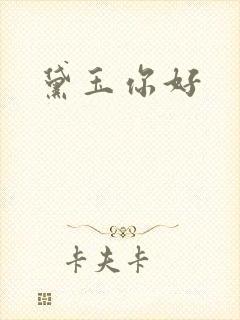 黛玉你好
卡夫卡